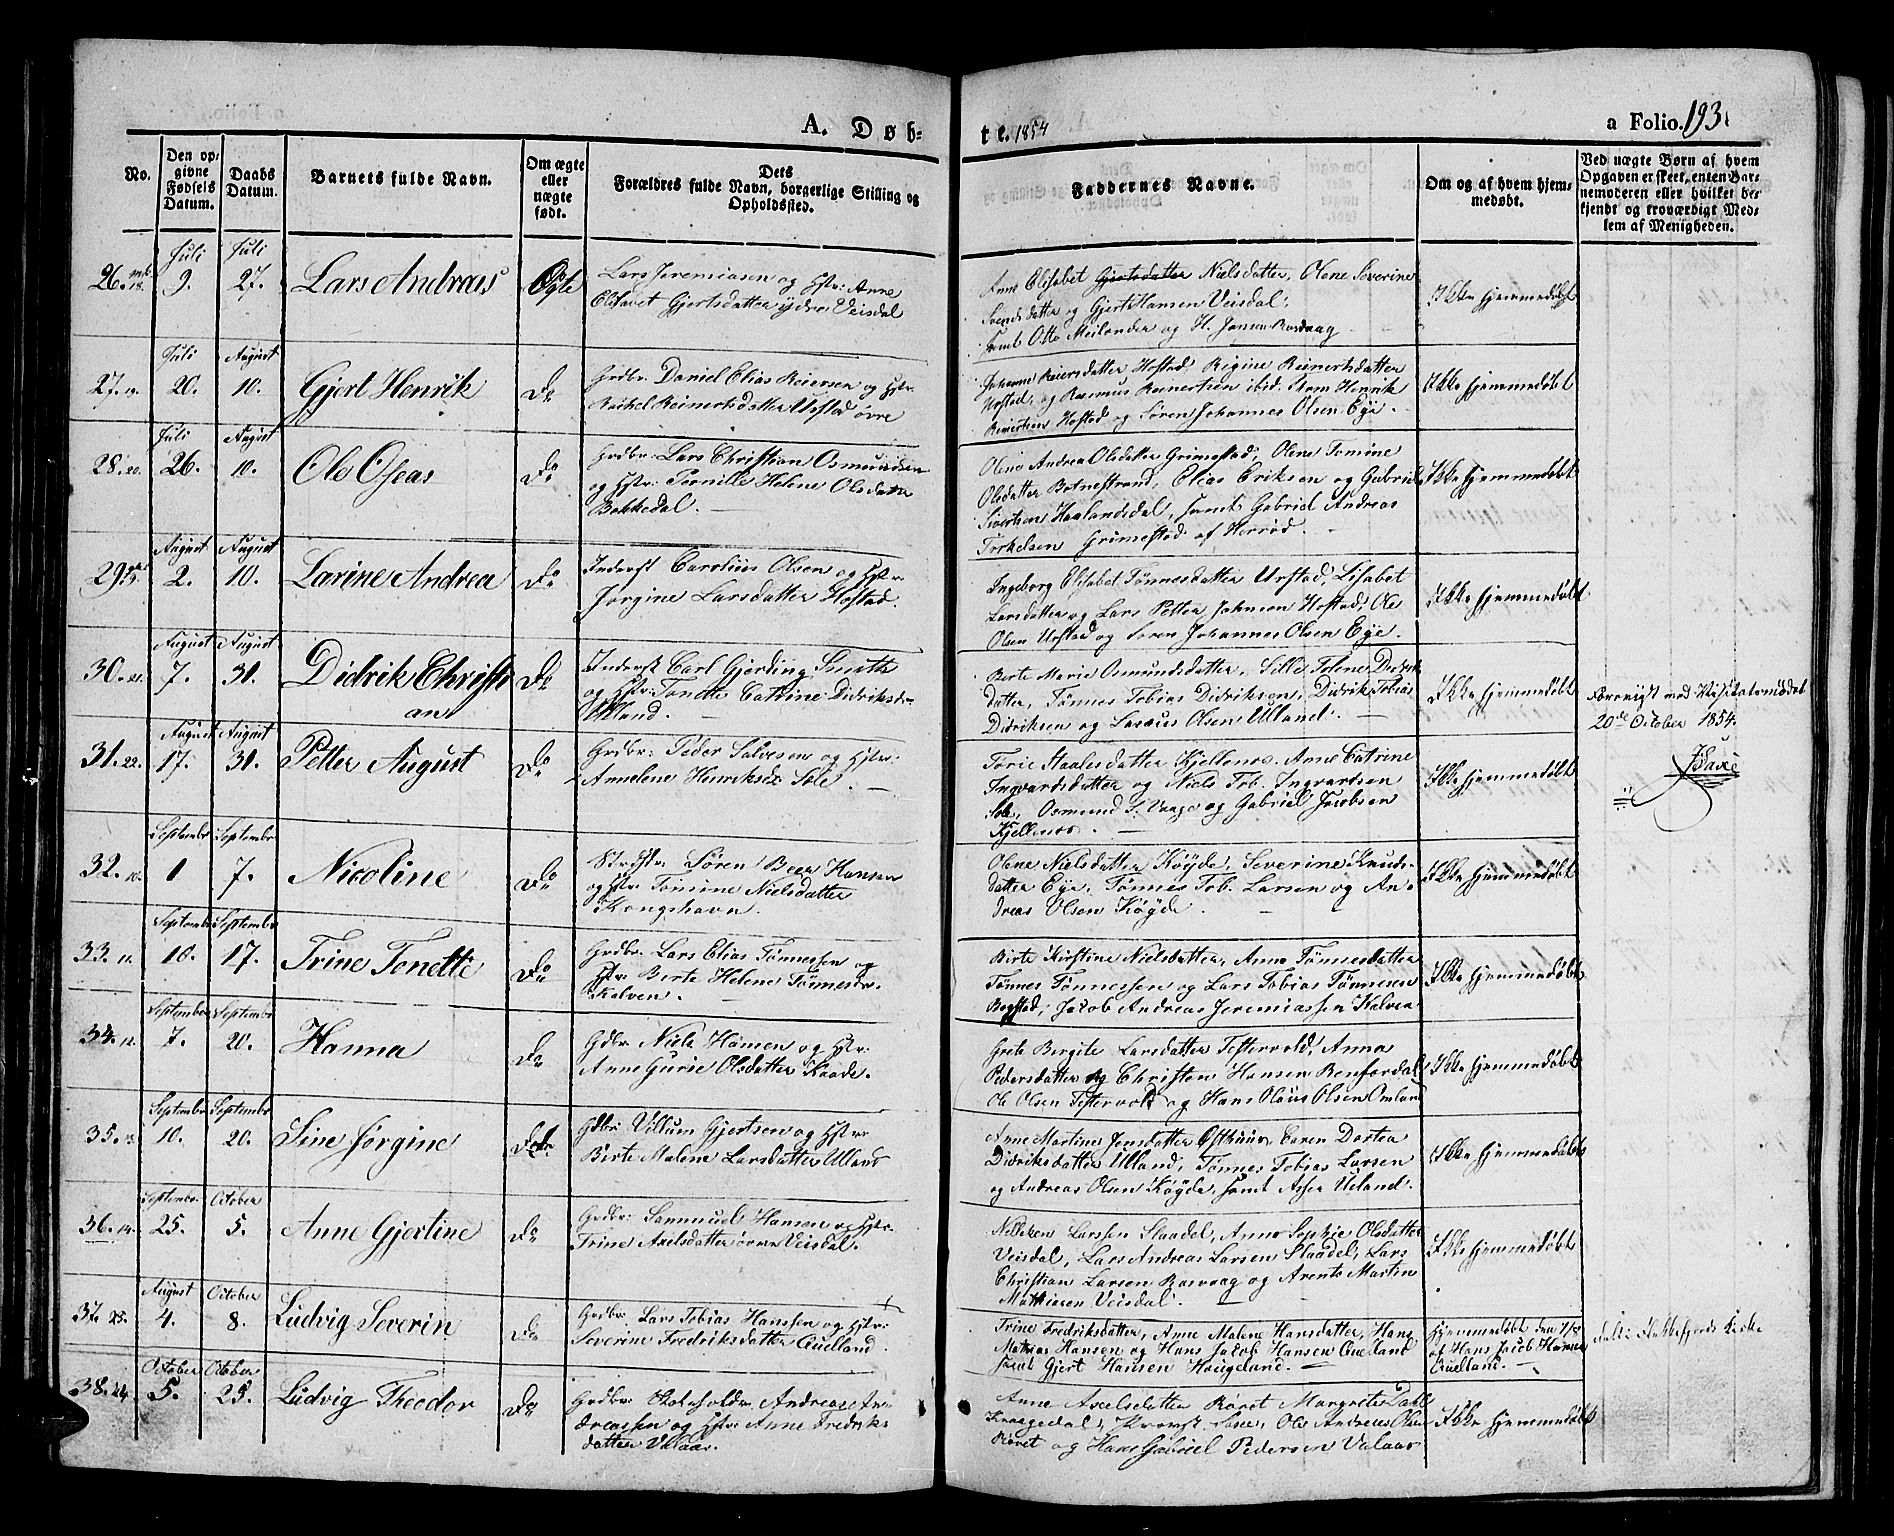 A. Døb-
te. 1854
a Folio. 193
No.
Den op-
givne
Fødsels
Datum.
Daabs
Datum.
Barnets fulde Navn.
Om ægte
eller
uægte
født.
Dets
Forældres fulde Navn, borgerlige Stilling og
Opholdssted.
Faddernes Navne.
Om og af hvem hjem-
medøbt.
Ved uægte Børn af hvem
Opgaven er skeet, enten Bar-
nemoderen eller hvilket be-
kjendt og troværdigt Med-
lem af Menigheden.
26. mk. 18.
Juli
9.
Juli
27.
Lars Andreas
Ægte
Lars Jeremiasen og Hstr: Anne
Elisabet Gjertsdatter ydre Veisdal
Anne Elisabet Gjertsdatter Nielsdatter, Olene Severine
Svendsdatter og Gjert Hansen Veisdal,
samt Otto Meilænder og H. Jansen Rasvaag
Ikke hjemmedøbt
27. 19.
Juli
20.
August
10.
Gjert Henrik
Do
Grdbr: Daniel Elias Reiersen og Hstr:
Rachel Reinertsdatter Urstad øvre
Johanne Reiersdatter Hostad, Regine Reinertsdatter
Urstad, og Rasmus Reinertsen ibid: samt Henrik
Reinertsen Hostad og Søren Johannes Olsen Eye.
Ikke hjemmedøbt
28. 20.
Juli
26.
August
10.
Ole Oseas
Do
Grdbr: Lars Christian Osmundsen
og Hstr: Pernille Helene Olsdatter
Bakkedal. —
Olene Andrea Olsdatter Grimestad, Olene Tomine
Olsdatter Botnestrand, Elias Eriksen og Gabriel
Sivertsen Haalandsdal, samt Gabriel Andreas
Torkelsen Grimestad af Herrød. —
Ikke hjemmedøbt
29.
August
2.
August
10.
Larine Andrea
Do
Inderst Carolius Olsen og Hstr:
Jørgine Larsdatter Hostad.
Ingeborg Elisabet Tønnesdatter Urstad, Lisabet
Larsdatter og Lars Petter Johnsen Hostad, Ole
Olsen Urstad og Søren Johannes Olsen Eye.
Ikke hjemmedøbt
30. 21.
August
7.
August
31.
Didrik Christi
an
Do
Inderst Carl Gjerding Smith
og Hstr: Tonette Catrine Didriksdr
Ulland. —
Berte Marie Osmundsdatter, Sille Tolene Didriks
datter, Tønnes Tobias Didriksen, Didrik Tobias
Didriksen og Lasaus Olsen Ulland. —
Ikke hjemmedøbt
Foreviist ved Visitatsmødet
20de October 1854.
31. 22.
August
17.
August
31.
Petter August
Do
Grdbr: Peder Salvesen og Hstr:
Annelene Henriksdr Sole. —
Torie Staalesdatter Kjellenes, Anne Catrine
Ingvardsdatter og Niels Tob. Ingvardsen
Sole, Osmund S. Vaage og Gabriel Jacobsen
Kjellenes. —
Ikke hjemmedøbt
32. 10.
September
1
September
7.
Nicoline
Do
Søren Beer Hansen
og Hstr: Tomine Nielsdatter
Kongshavn.
Olene Nielsdatter Køyde, Severine Knuds-
datter Eye, Tønnes Tob. Larsen og An-
dreas Olsen Køyde. —
Ikke hjemmedøbt
33. 11.
September
10.
September
17.
Trine Tonette
Do
Grdbr: Lars Elias Tønnessen og
Hstr: Berte Helene Tønnesdr.
Kalven. —
Birte Kirstine Nielsdatter, Anna Tønnesdatter
Tønnes Tønnessen og Lars Tobias Tønnesen
Bogstad, Jacob Andreas Jeremiassen Kalven
Ikke hjemmedøbt
34. 12.
September
7.
September
20.
Hanna
Do
Gdbr: Niels Hansen og Hstr:
Anne Gurie Olsdatter Skaade.
Grete Birgite Larsdatter Testervold, Anna
Pedersdatter og Christen Hansen Benfordal,
Ole Olsen Testervold og Hans Olaus Olsen Omland
Ikke hjemmedøbt
35. 13.
September
10.
September
20.
Sine Jørgine
Do
Gdbr: Villum Gjertsen og Hstr:
Birte Malene Larsdatter Ulland
Anne Martine Jensdatter Osthuus, Caren Dortea
Didriksdatter Ulland, Tønnes Tobias Larsen
og Andreas Olsen Køyde, samt Asser Ueland.
Ikke hjemmedøbt
36. 14.
September
25.
October
5.
Anne Gjertine
Do
Grdbr: Sammuel Hansen og Hstr.
Trine Axelsdatter øvre Veisdal.
Nelleken Larssen Staadel, Anne Sophie Olsdatter
Veisdal, Lars Andreas Larsen Staadel, Lars
Christian Larsen Rasvaag og Arents Martin
Mathiasen Veisdal. —
Ikke hjemmedøbt
37. 23.
August
4.
October
8.
Ludvig Severin
Do
Grdbr: Lars Tobias Hanssen og Hstr:
Severine Fredriksdatter Quelland.
Trine Fredriksdatter, Anne Malene Hansdatter, Hans
Mathias Hansen og Hans Jacob Hansen Quelland
samt Gjert Hansen Haugeland. —
Hjemmedøbt den 7/8
af Hans Jacob Hansen
Quelland. —
døbt i Flekkefjords Kirke
38. 24.
October
5.
October
25.
Ludvig Theodor
Do
Grdbr: Skoleholder Andreas An-
dreassen og Hstr: Anne Fredriks
datter Valaas.
Anne Axelsdatter Røret Margrete Dahl
Kraagedal, Ole Andreas Olsen
Røret og Hans Gabriel Pedersen Valaas
Ikke hjemmedøbt